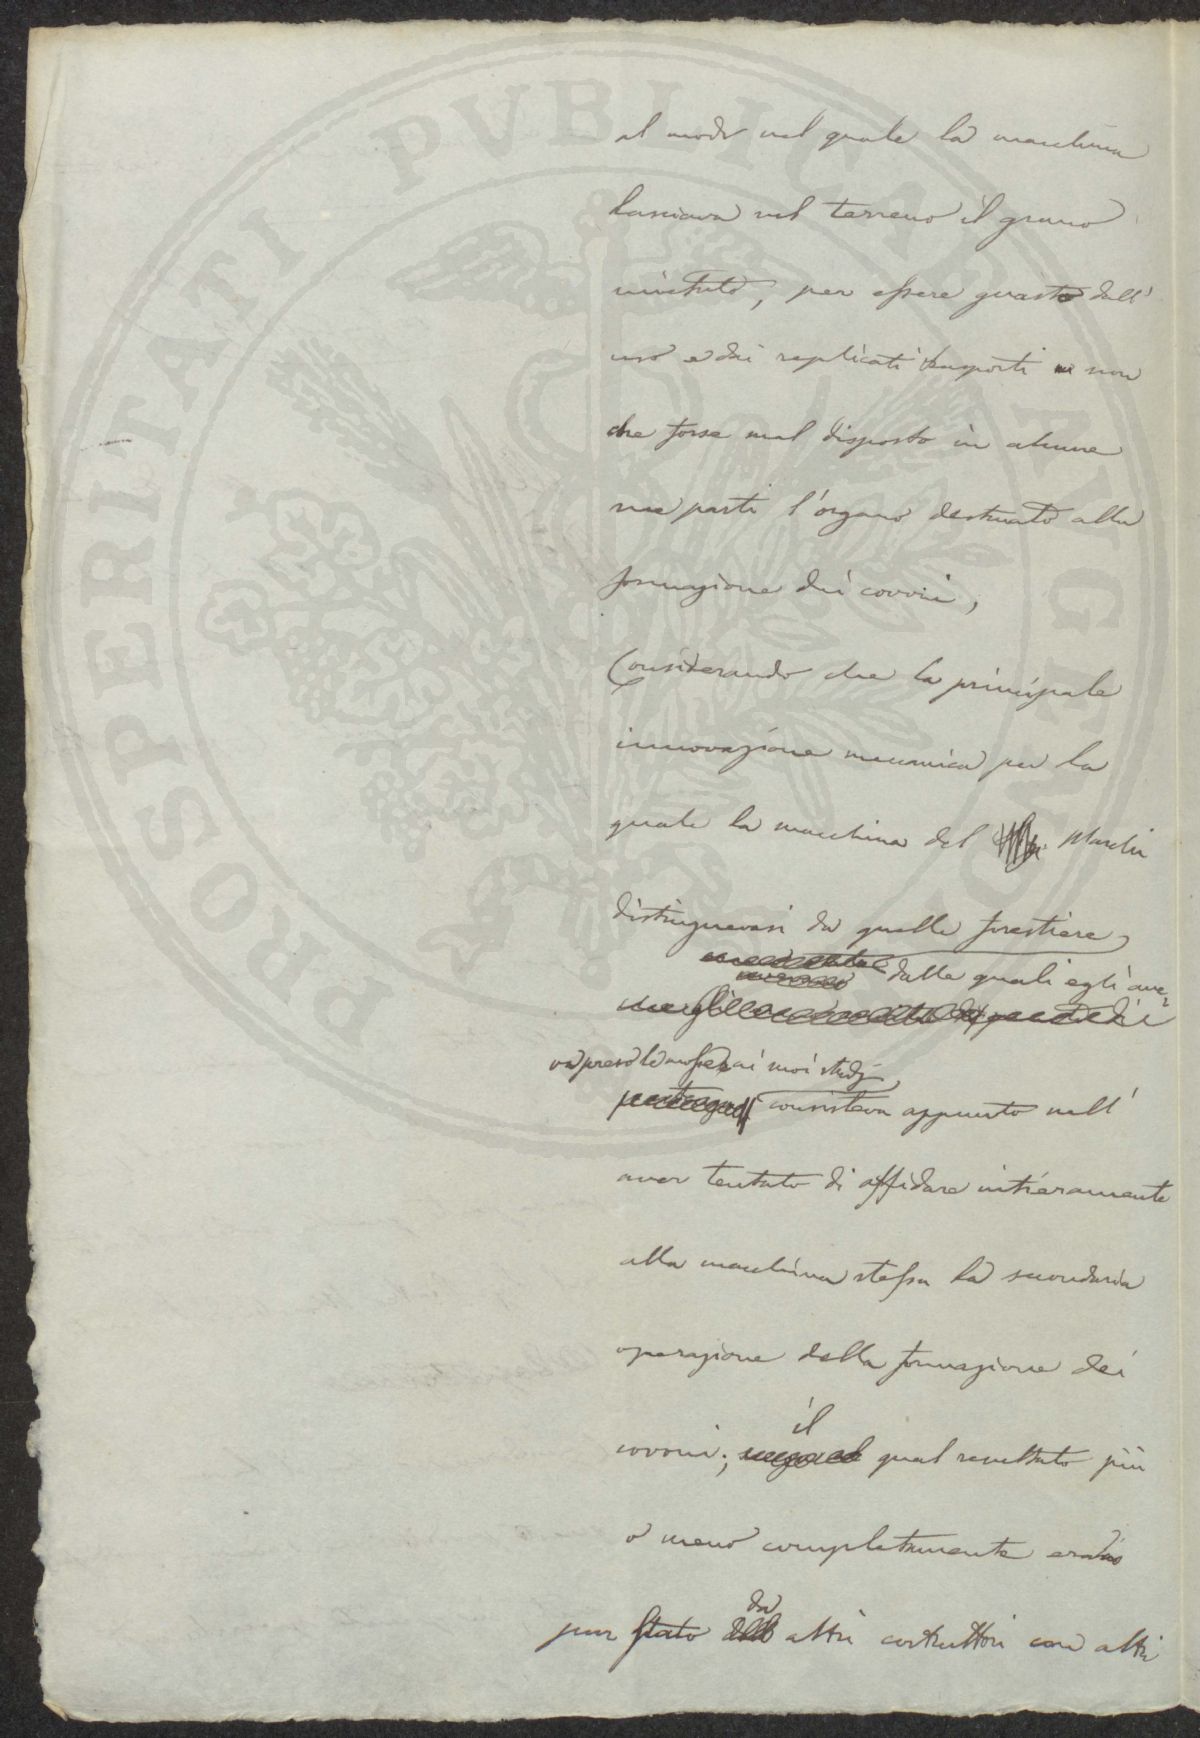 PROSPERITATI PVBLICAE AVGENDAE
al modo nel quale la macchina
lasciava sul terreno il grano
mietuto, per essere guasto dall'
uso e dai replicati trasporti non
che forse mal disposto in alcune
sue parti l'organo destinato alla
formazione dei covoni;
Considerando che la principale
innovazione meccanica per la
quale la macchina del Marchi
distinguevasi da quelle forestiere
dalle quali egli ave-
va preso le mosse ai suoi studj,
consisteva appunto nell'
aver tentato di affidare intieramente
alla macchina stessa la secondaria
operazione della formazione dei
covoni; il qual resultato più
o meno completamente era
pur stato da altri costruttori con altri